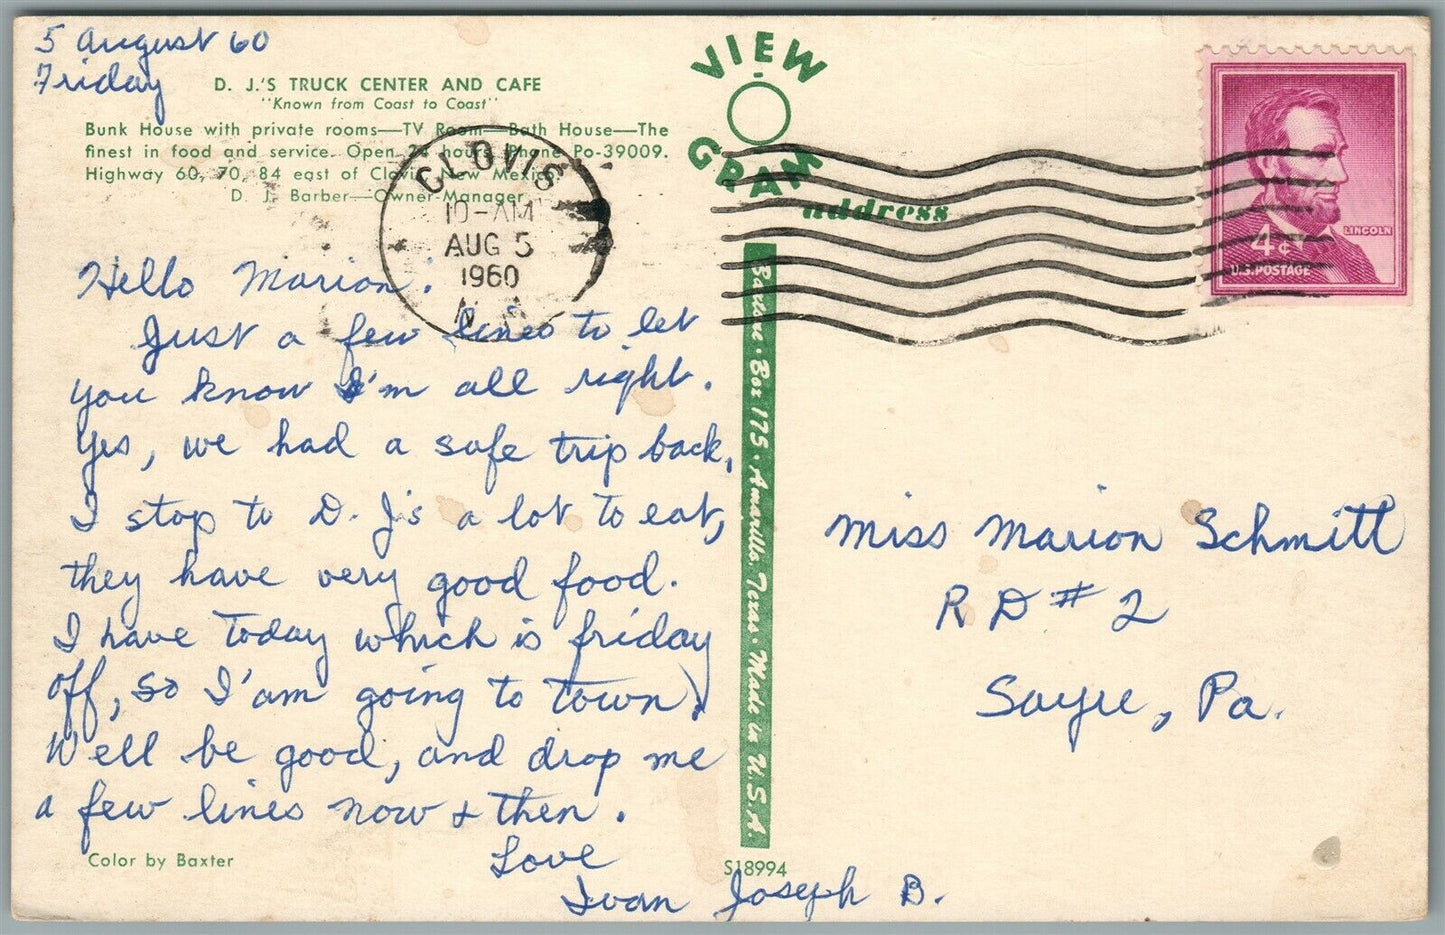 5 August 60
Friday
D. J.'S TRUCK CENTER AND CAFE
"Known from Coast to Coast"
Bunk House with private rooms—TV Room—Bath House—The
finest in food and service. Open 24 hours. Phone Po-39009.
Highway 60, 70, 84 east of Clovis, New Mexico
D. J. Barber—Owner-Manager
VIEW
GRAM
address
CLOVIS
10-AM
AUG 5
1960
N.
LINCOLN
4¢
U.S. POSTAGE
Hello Marion.
Just a few lines to let
you know I'm all right.
Yes, we had a safe trip back,
I stop to D. J's a lot to eat,
they have very good food.
I have today which is friday
off, so I'am going to town.
Well be good, and drop me
a few lines now & then.
Love
Ivan Joseph B.
Color by Baxter
S18994
Baxtone · Box 175 · Amarillo, Texas · Made in U.S.A.
Miss Marion Schmitt
R D # 2
Sayre, Pa.